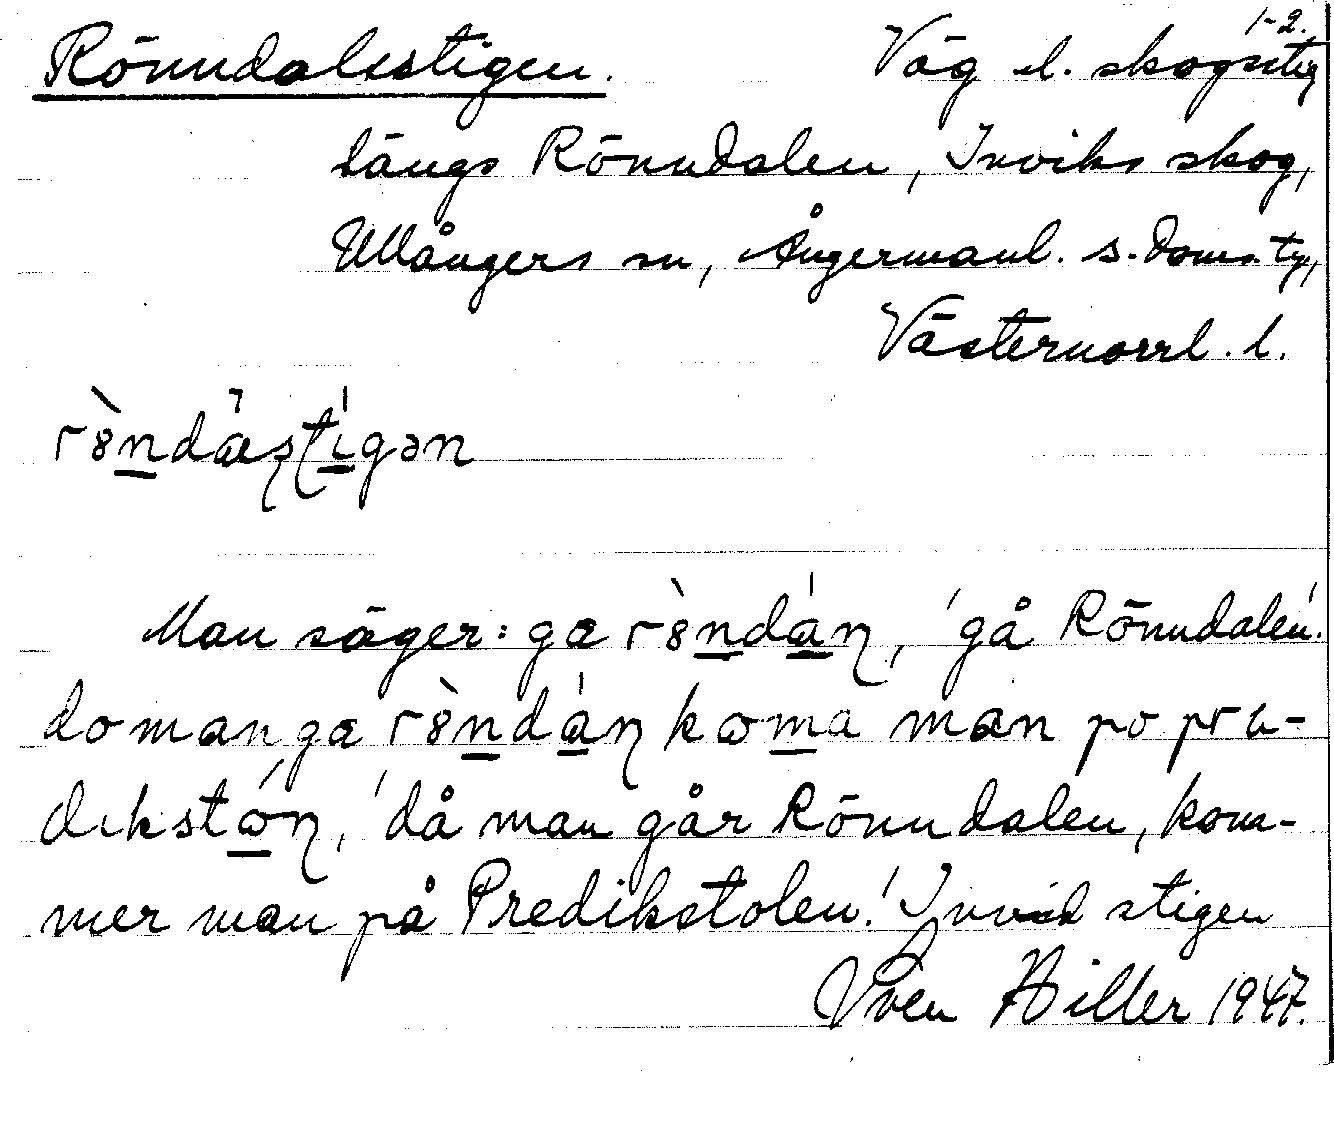 1-2.
Rönndalsstigen. Väg l. skogsstig
längs Rönndalen, Inviks skog,
Ullångers sn, Ångermanl. s. doms. ty,
Västernorrl. l.
rèndástígən
Man säger: ga rèndáɳ, 'gå Rönndalen'.
do man ga rèndáɳ koma man po pra-
dıkstóɳ, 'då man går Rönndalen, kom-
mer man på Predikstolen.' Invid stigen
Sven Hiller 1947.